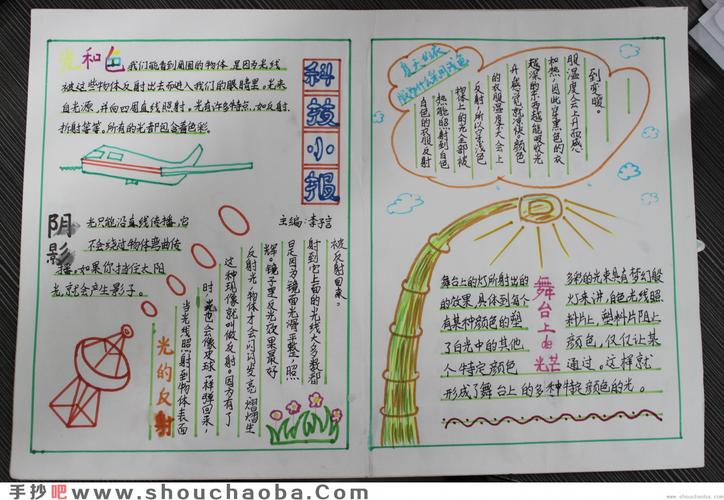 光和色
我们能看到周围的物体,是因为光线
被这些物体反射出去而进入我们的眼睛里。光来
自光源,并向四周直线照射。光有许多特点,如反射、
折射等等。所有的光都包含着色彩。
科技小报
主编:李子言
阴影
光只能沿直线传播,它
不会绕过物体弯曲传
播,如果你挡住太阳
光,就会产生影子。
光的反射
当光线照射到物体表面
时,光也会像皮球一样弹回来,
这种现象就叫做反射。因为有了
反射光,物体才会闪闪发亮、熠熠生
辉。镜子里反光效果最好
是因为镜面光滑平整,照
射到它上面的光线大多数都
被反射回来。
夏天的衣
服为什么多用浅色
白色的衣服反射
热能照射到白色
物体上的光全部被
反射,所以穿浅色
的衣服温度不大会上
升感觉就凉快。颜色
越深的东西越能吸收光
和热,因此穿黑色的衣
服温度会上升感
到变暖。
舞台上的光芒
舞台上的灯所射出的 多彩的光来具有梦幻般
的效果,具体到每个 灯来讲,白色光线照
有某种颜色的塑 料片上,塑料片阻止
了白光中的其他 颜色,仅仅让某
个特定颜色 通过。这样就
形成了舞台上的多种特定颜色的光。
手抄吧www.shouchaoba.Com
www.shouchaoba.com